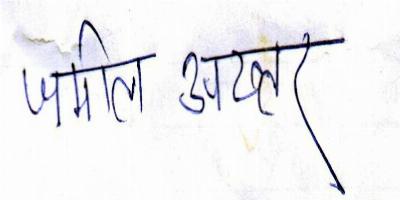 जमील अख्तर